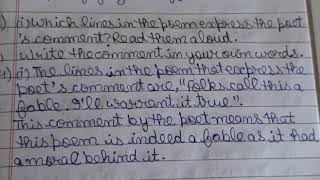 ) (i) Which lines in the poem express the poet
's comment? Read them aloud.
) Write the comment in your own words.
) (i) The lines in the poem that express the
poet's comment are, "Folks call this a
fable. I'll warrent it true".
This comment by the poet means that
this poem is indeed a fable as it had
a moral behind it.